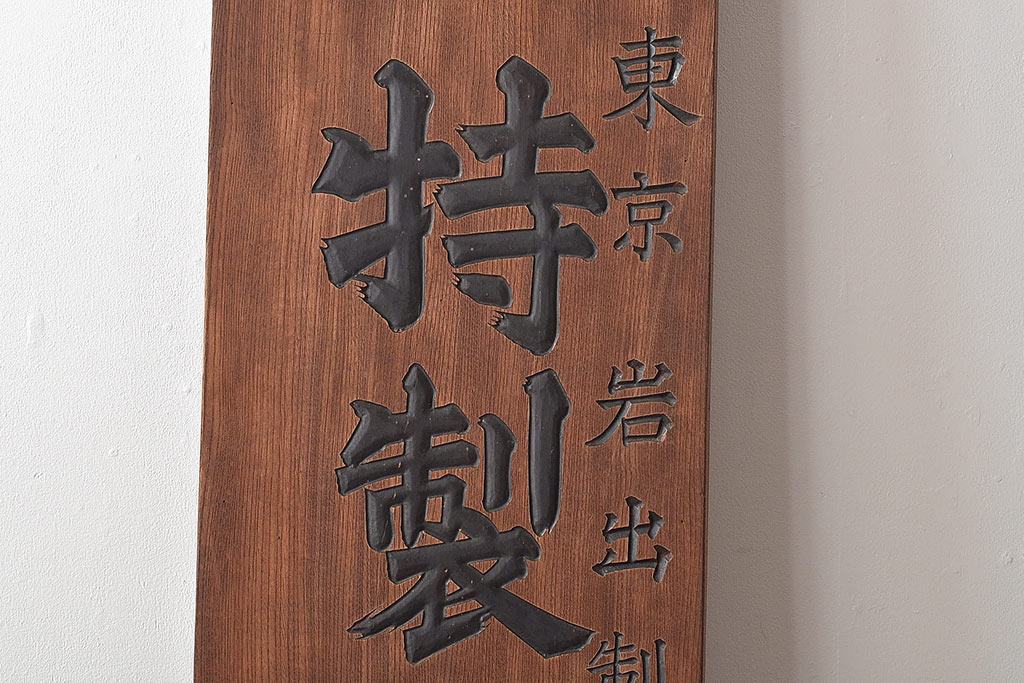 東京岩出
特製